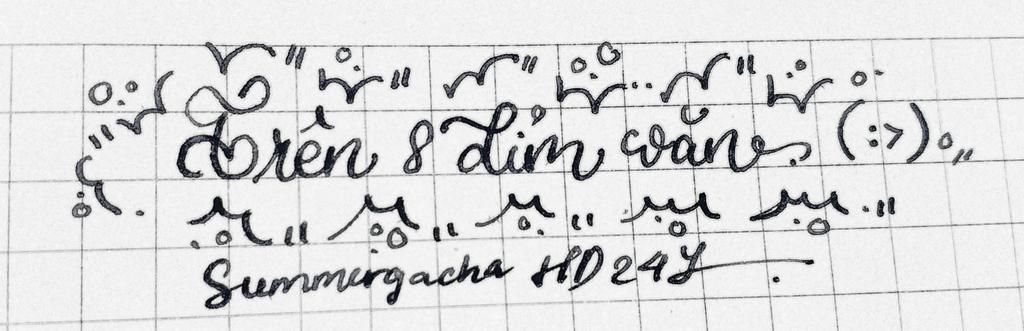 trên 8 đỉm văn. (:>)
Summergacha HD24Y